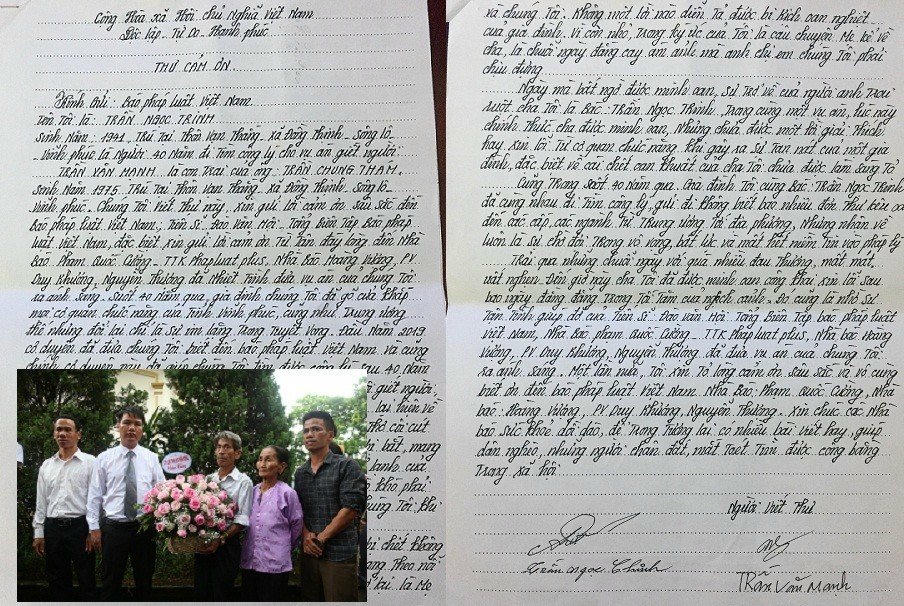 Cộng Hòa xã Hội chủ Nghĩa Việt Nam
Độc lập Tự Do Hạnh phúc
THƯ CẢM ƠN
Kính Gửi: Báo pháp luật Việt Nam
Tên Tôi là: TRẦN NGỌC TRINH
Sinh Năm: 1941 Trú Tại Thôn Vạn Thắng xã Đồng Thịnh - Sông lô
Vĩnh phúc là Người 40 Năm đi Tìm công lý cho vụ án giết người
TRẦN VĂN MẠNH là con Trai của ông TRẦN CHUNG THÁM
Sinh Năm 1975 Trú Tại Thôn Vạn Thắng xã Đồng Thịnh - Sông lô
Vĩnh phúc - Chúng Tôi Viết Thư Này, xin gửi lời cảm ơn Sâu Sắc đến
báo pháp luật Việt Nam; Tiến Sĩ Đào Văn Hội. Tổng Biên Tập Báo pháp
luật Việt Nam, đặc biệt xin gửi lời cảm ơn Từ tận đáy lòng đến Nhà
Báo Phạm Quốc Cường - TTK Phapluatplus, Nhà Báo Hoàng Vương, PV
Duy Khương, Nguyễn Thưởng đã Nhiệt Tình đưa vụ án của chúng Tôi
ra ánh Sáng. Suốt 40 Năm qua, gia đình chúng Tôi đã gõ cửa khắp
mọi cơ quan chức năng của Tỉnh Vĩnh phúc, cũng như Trung ương
Thế nhưng đổi lại chỉ là Sự im lặng Trong Tuyệt Vọng. Đầu Năm 2019
có duyên đã đưa chúng Tôi biết đến báo pháp luật Việt Nam và cũng
chính có duyên này đã giúp chúng Tôi Tìm được công lý Sau 40 Năm
giết người;
lại Trên về
Thơ cả cứt
bị bắt, mang
lành của
khó phải
chúng Tôi khi
bị chết không
Theo nỗi
lại là Mẹ
và chúng Tôi. Không một lời nào diễn Tả được bi kịch oan nghiệt
của gia đình. Vì còn nhỏ, Trong ký ức của Tôi là câu chuyện Mẹ kể về
cha, là chuỗi ngày đắng cay ám ảnh mà anh chị em chúng Tôi phải
chịu đựng
Ngày mà bất ngờ được minh oan, Sự Trở về của người anh Trai
ruột cha Tôi là Bác Trần Ngọc Trinh, Trong cùng một vụ án, lúc này
chính Thức cha được minh oan, Nhưng chưa được một lời giải Thích
hay xin lỗi Từ cơ quan chức năng khi gây ra Sự Tan nát của một gia
đình, đặc biệt về cái chết oan khuất của cha Tôi chưa được làm Sáng Tỏ
Cũng Trong Suốt 40 Năm qua. Gia đình Tôi cùng Bác Trần Ngọc Trinh
đã cùng nhau đi Tìm công lý, gửi đi không biết bao nhiêu đơn Thư kêu oan
đến các cấp, các ngành Từ Trung ương Tới địa phương, Nhưng nhận về
luôn là Sự chờ đợi Trong vô vọng, bất lực và mất hết niềm Tin vào pháp lý
Trải qua những chuỗi ngày với quá nhiều đau Thương, mất mát
uất nghẹn Đến giờ này cha Tôi đã được minh oan công khai xin lỗi Sau
bao ngày đằng đẵng Trong Tối Tăm của nghịch cảnh. Đó cũng là nhờ Sự
Tận Tình giúp đỡ của Tiến Sĩ Đào Văn Hội Tổng Biên Tập báo pháp luật
Việt Nam, Nhà Báo phạm Quốc Cường - TTK Phápluật plus, Nhà báo Hoàng
Vương, PV Duy Khương, Nguyễn Thưởng đã đưa vụ án của chúng Tôi
ra ánh Sáng. Một lần nữa, Tôi xin Tỏ lòng cảm ơn Sâu Sắc và vô cùng
biết ơn đến báo pháp luật Việt Nam. Nhà Báo: Phạm Quốc Cường, Nhà
báo: Hoàng Vương, PV Duy Khương, Nguyễn Thưởng. Xin chúc các Nhà
báo Sức khỏe dồi dào, để Trong Tương lai có nhiều bài Viết hay, giúp
dân nghèo, những người chân đất, mắt Toét Tìm được công bằng
Trong xã hội.
Người Viết Thư
Trần Ngọc Chinh
Trần Văn Mạnh